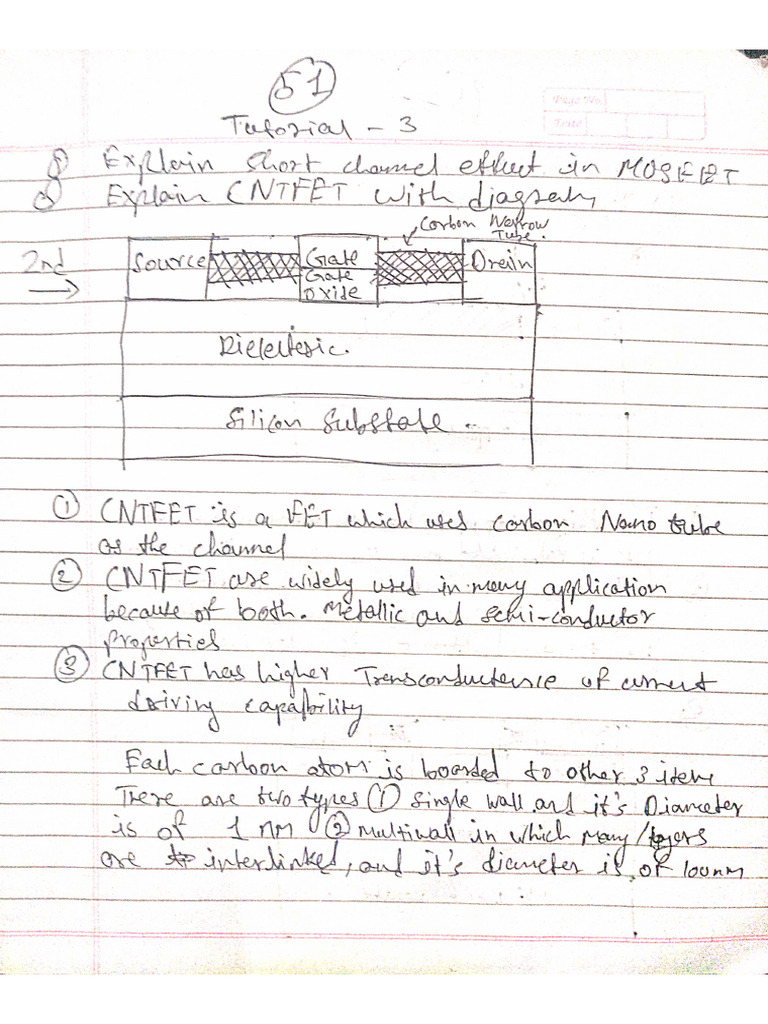 51
Page No.
Date
Tutorial - 3
Q Explain short channel effect in MOSFET
Q Explain CNTFET with diagram
Carbon Narrow
Tube.
2nd
Source
Gate
Gate
Oxide
Drain
Dielecteric.
Silicon Substate
① CNTFET is a FET which uses carbon Nano tube
as the channel
② CNTFET are widely used in many application
because of both. Metallic and semi-conductor
properties
③ CNTFET has higher Transconductence of current
driving capability
Each carbon atom is boarded to other 3 item
There are two types ① single wall and it's Diameter
is of 1 nm ② multiwall in which many layers
are interlinked, and it's diameter is of 100nm